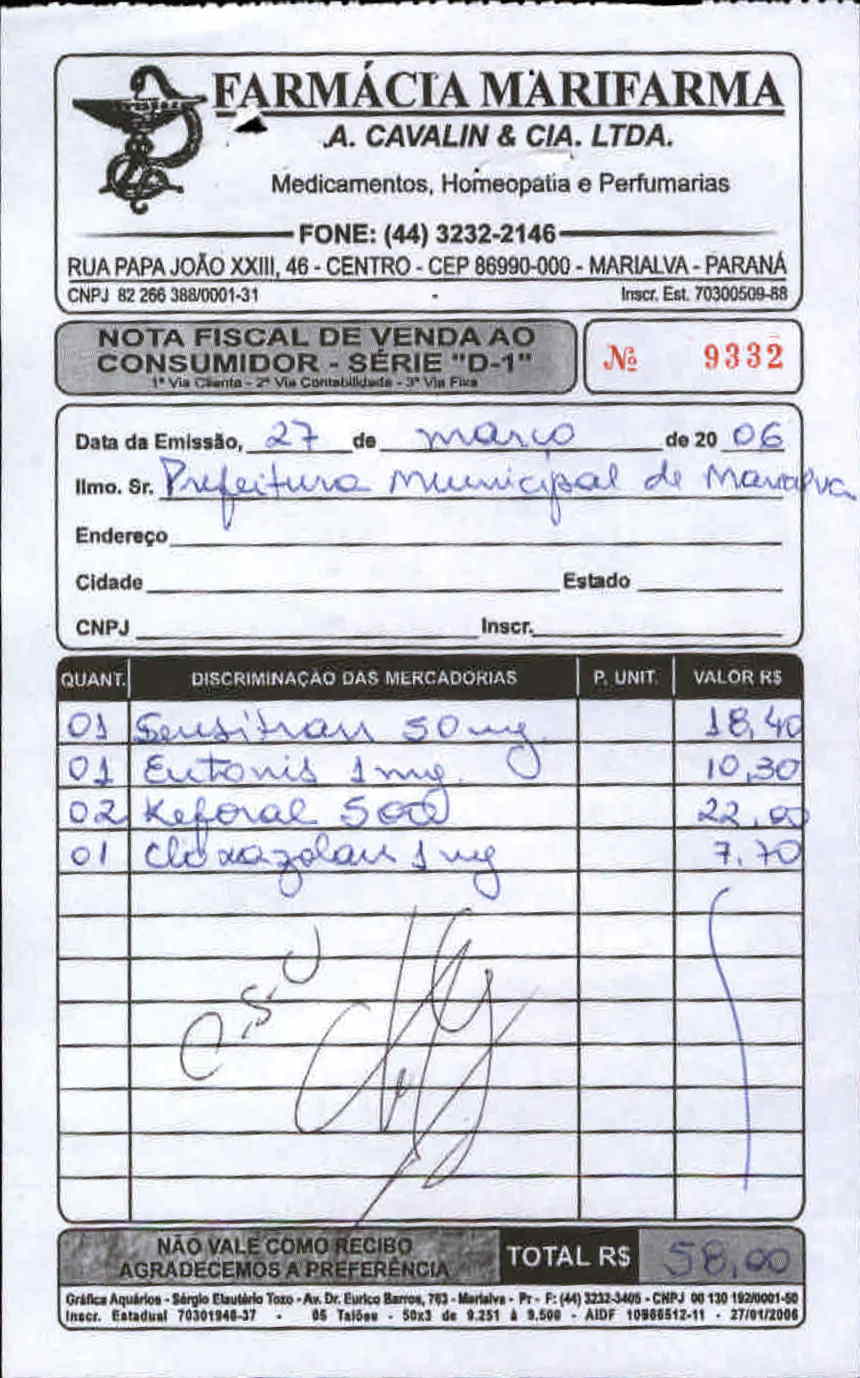 FARMÁCIA MARIFARMA
A. CAVALIN & CIA. LTDA.
Medicamentos, Homeopatia e Perfumarias
FONE: (44) 3232-2146
RUA PAPA JOÃO XXIII, 46 - CENTRO - CEP 86990-000 - MARIALVA - PARANÁ
CNPJ 82 266 388/0001-31 Inscr. Est. 70300509-88
NOTA FISCAL DE VENDA AO
CONSUMIDOR - SÉRIE "D-1"
1ª Via Cliente - 2ª Via Contabilidade - 3ª Via Fixa
Nº 9332
Data da Emissão, 27 de março de 20 06
Ilmo. Sr. Prefeitura Municipal de Marialva
Endereço
Cidade Estado
CNPJ Inscr.
QUANT. DISCRIMINAÇÃO DAS MERCADORIAS P. UNIT. VALOR R$
01 Sensitran 50mg 18,40
01 Eutonis 1mg. 10,30
02 Keforal 500 22,00
01 Cloxazolan 1mg 7,70
NÃO VALE COMO RECIBO
AGRADECEMOS A PREFERÊNCIA
TOTAL R$ 58,00
Gráfica Aquários - Sérgio Elautério Tozo - Av. Dr. Eurico Barros, 763 - Marialva - Pr - F: (44) 3232-3405 - CNPJ 00 130 192/0001-50
Inscr. Estadual 70301946-37 - 05 Talões - 50x3 de 9.251 à 9.500 - AIDF 10986512-11 - 27/01/2006